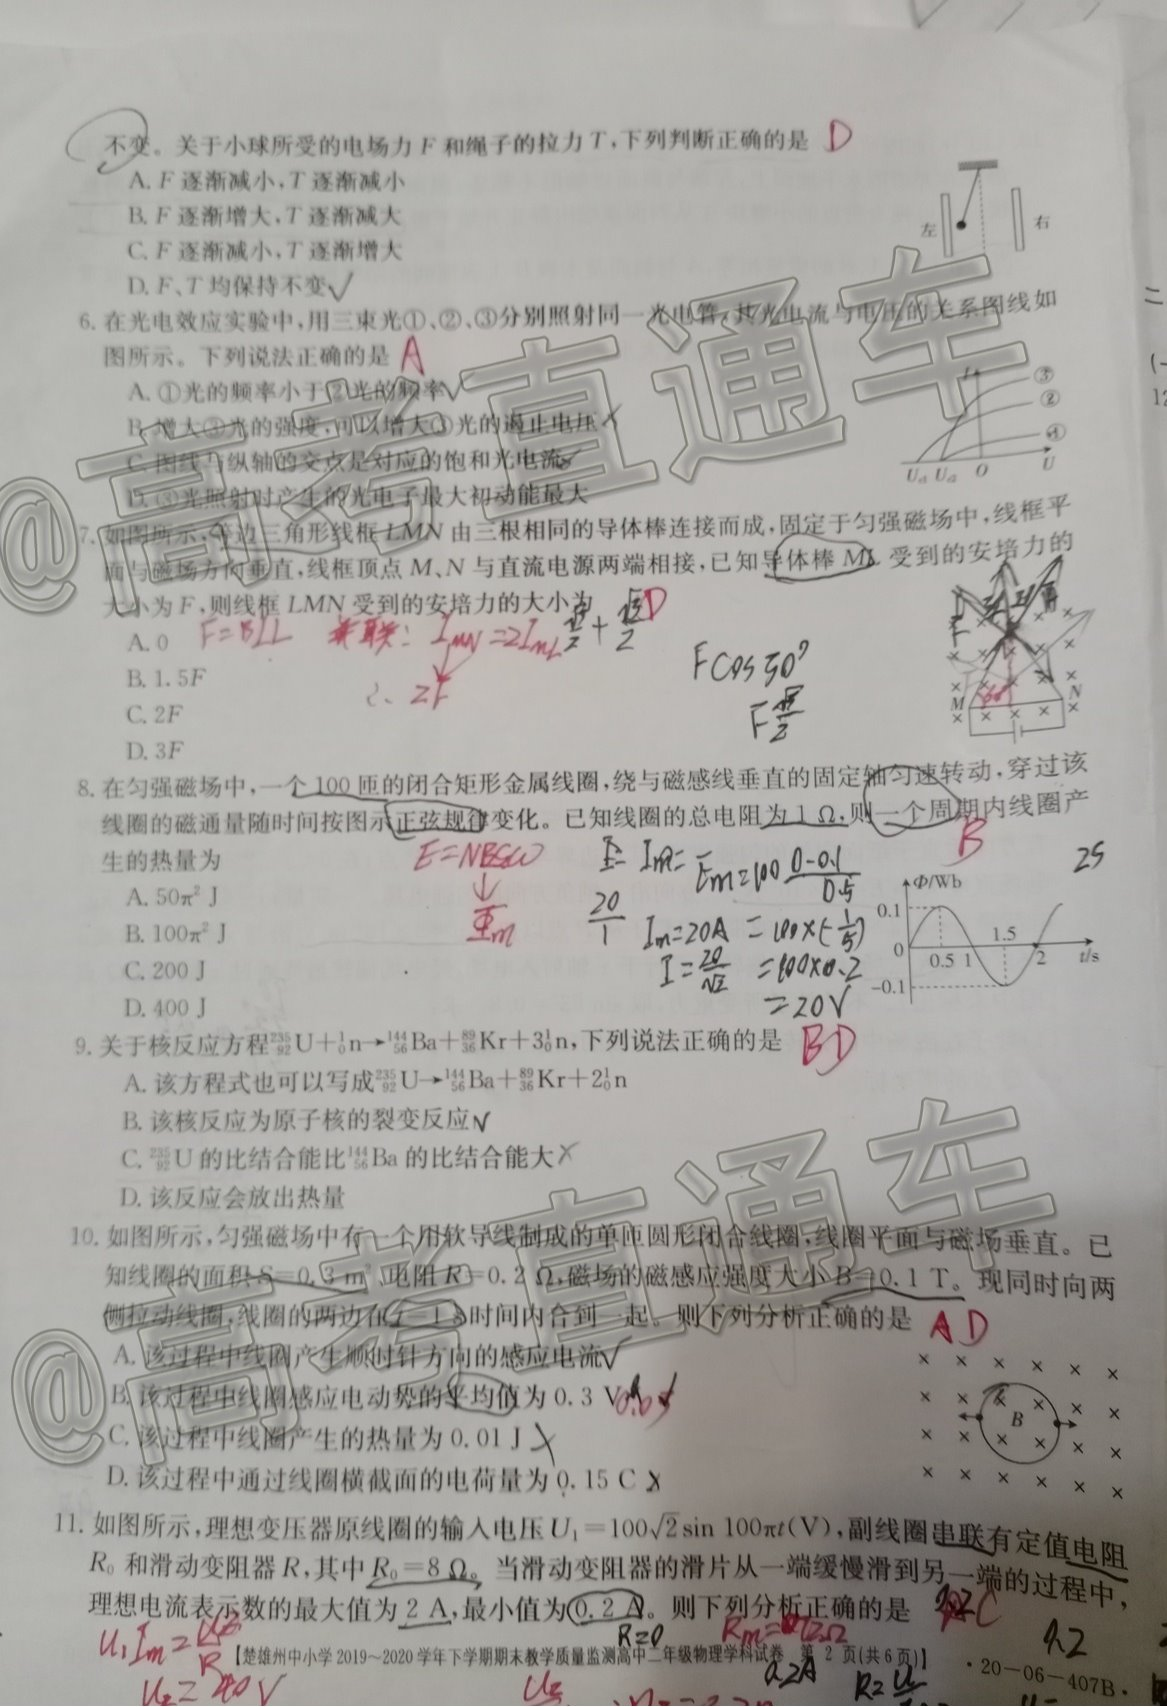 不变。关于小球所受的电场力 F 和绳子的拉力 T,下列判断正确的是 D
A. F 逐渐减小,T 逐渐减小
B. F 逐渐增大,T 逐渐减大
C. F 逐渐减小,T 逐渐增大
D. F、T 均保持不变√
左 右
6. 在光电效应实验中,用三束光①、②、③分别照射同一光电管,其光电流与电压的关系图线如
图所示。下列说法正确的是 A
A. ①光的频率小于②光的频率√
B. 增大③光的强度,可以增大③光的遏止电压×
C. 图线与纵轴的交点是对应的饱和光电流
D. ③光照射时产生的光电子最大初动能最大
I ③ ②
O U
@高考直通车
7. 如图所示,等边三角形线框 LMN 由三根相同的导体棒连接而成,固定于匀强磁场中,线框平
面与磁场方向垂直,线框顶点 M、N 与直流电源两端相接,已知导体棒 ML 受到的安培力的
大小为 F,则线框 LMN 受到的安培力的大小为 D
A. 0 F=BIL 并联: I_MN=2I_ML √3/2+√3/2
B. 1.5F ∴ 2F
C. 2F
D. 3F
M N
8. 在匀强磁场中,一个 100 匝的闭合矩形金属线圈,绕与磁感线垂直的固定轴匀速转动,穿过该
线圈的磁通量随时间按图示正弦规律变化。已知线圈的总电阻为 1 Ω,则一个周期内线圈产
生的热量为 E=NBSω B
A. 50π² J
B. 100π² J
C. 200 J
D. 400 J
Em=100 (0-0.1)/0.5
20/1 Im=20A =100×(-1/5)
I=20/√2 =100×0.2
=20V
Φ/Wb
0.1
0 0.5 1 1.5 2 t/s
-0.1
9. 关于核反应方程²³⁵₉₂U+¹₀n→¹⁴⁴₅₆Ba+⁸⁹₃₆Kr+3¹₀n,下列说法正确的是 BD
A. 该方程式也可以写成²³⁵₉₂U→¹⁴⁴₅₆Ba+⁸⁹₃₆Kr+2¹₀n
B. 该核反应为原子核的裂变反应√
C. ²³⁵₉₂U 的比结合能比¹⁴⁴₅₆Ba 的比结合能大×
D. 该反应会放出热量
10. 如图所示,匀强磁场中有一个用软导线制成的单匝圆形闭合线圈,线圈平面与磁场垂直。已
知线圈的面积 S=0.3 m²、电阻 R=0.2 Ω,磁场的磁感应强度大小 B=0.1 T。现同时向两
侧拉动线圈,线圈的两边在 t=1 s 时间内合到一起。则下列分析正确的是 AD
A. 该过程中线圈产生顺时针方向的感应电流√
B. 该过程中线圈感应电动势的平均值为 0.3 V 0.03
C. 该过程中线圈产生的热量为 0.01 J ×
D. 该过程中通过线圈横截面的电荷量为 0.15 C
B
@高考直通车
11. 如图所示,理想变压器原线圈的输入电压 U₁=100√2sin 100πt(V),副线圈串联有定值电阻
R₀ 和滑动变阻器 R,其中 R₀=8 Ω。当滑动变阻器的滑片从一端缓慢滑到另一端的过程中,
理想电流表示数的最大值为 2 A,最小值为 0.2 A。则下列分析正确的是
R=0
【楚雄州中小学 2019~2020 学年下学期期末教学质量监测高中二年级物理学科试卷 第 2 页(共 6 页)】
·20-06-407B·